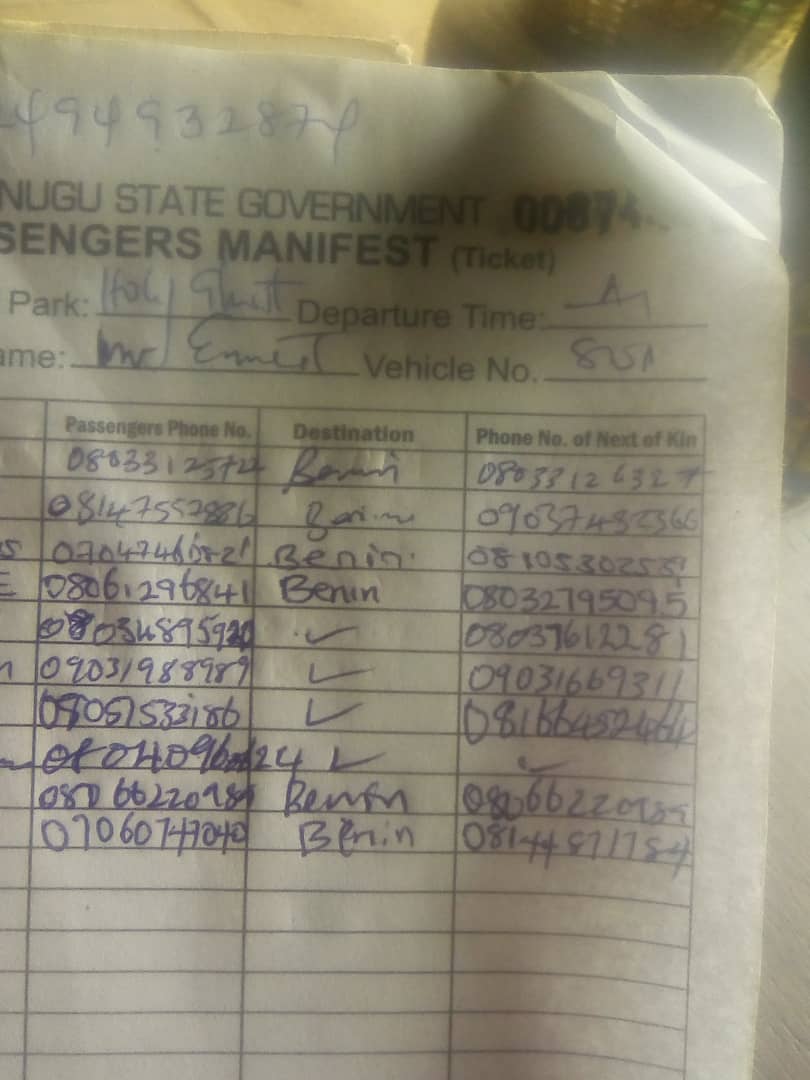 494932874
NUGU STATE GOVERNMENT
SENGERS MANIFEST (Ticket)
Park: Holy Ghost Departure Time:
ame: Mr Ernest Vehicle No.
Passengers Phone No. Destination Phone No. of Next of Kin
Benin 08033126327
08147552886 Benin 09037432366
S Benin. 08105302559
E 08061296841 Benin 08032795095
✓ 08037612281
n 09031988989 ✓ 09031669311
08051533186 ✓
✓ ✓
08066220989 Benin 08066220989
07060747040 Benin 08144871784